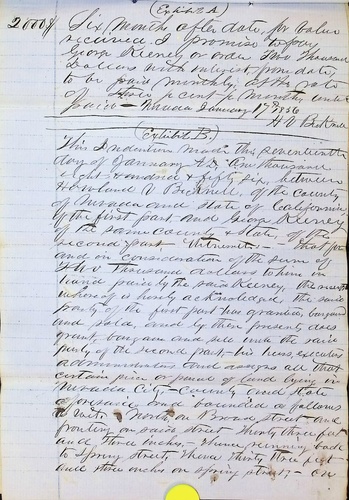 (Exhibit A)
2000$ Six months after date, for value
received, I promise to pay
George Keeney or order Two Thousand
Dollars with interest from date,
to be paid monthly, at the rate
of three per cent per month, until
paid - Nevada January 17th 1856
H V Bicknell
(Exhibit B)
This Indenture made this seventeenth
day of January A.D. One thousand
eight hundred & fifty six, between
Howland V Bicknell, of the county
of Nevada and State of California
of the first part, and George Keeney
of the same county & State, of the
second part Witnesseth - That for
and in consideration of the sum of
Two Thousand dollars to him in
hand paid by the said Keeney, the receipt
whereof is hereby acknowledged, the said
party of the first part has granted, bargained
and sold, and by these presents does
grant, bargain and sell unto the said
party of the second part - his heirs, executors
administrators and assigns all that
certain piece or parcel of land lying in
Nevada City - county and state
aforesaid and bounded as follows
to wit: North on Broad Street and
fronting on said street thirty three feet
and three inches, - thence running back
to Spring street, thence thirty three feet
and three inches on Spring street; - on